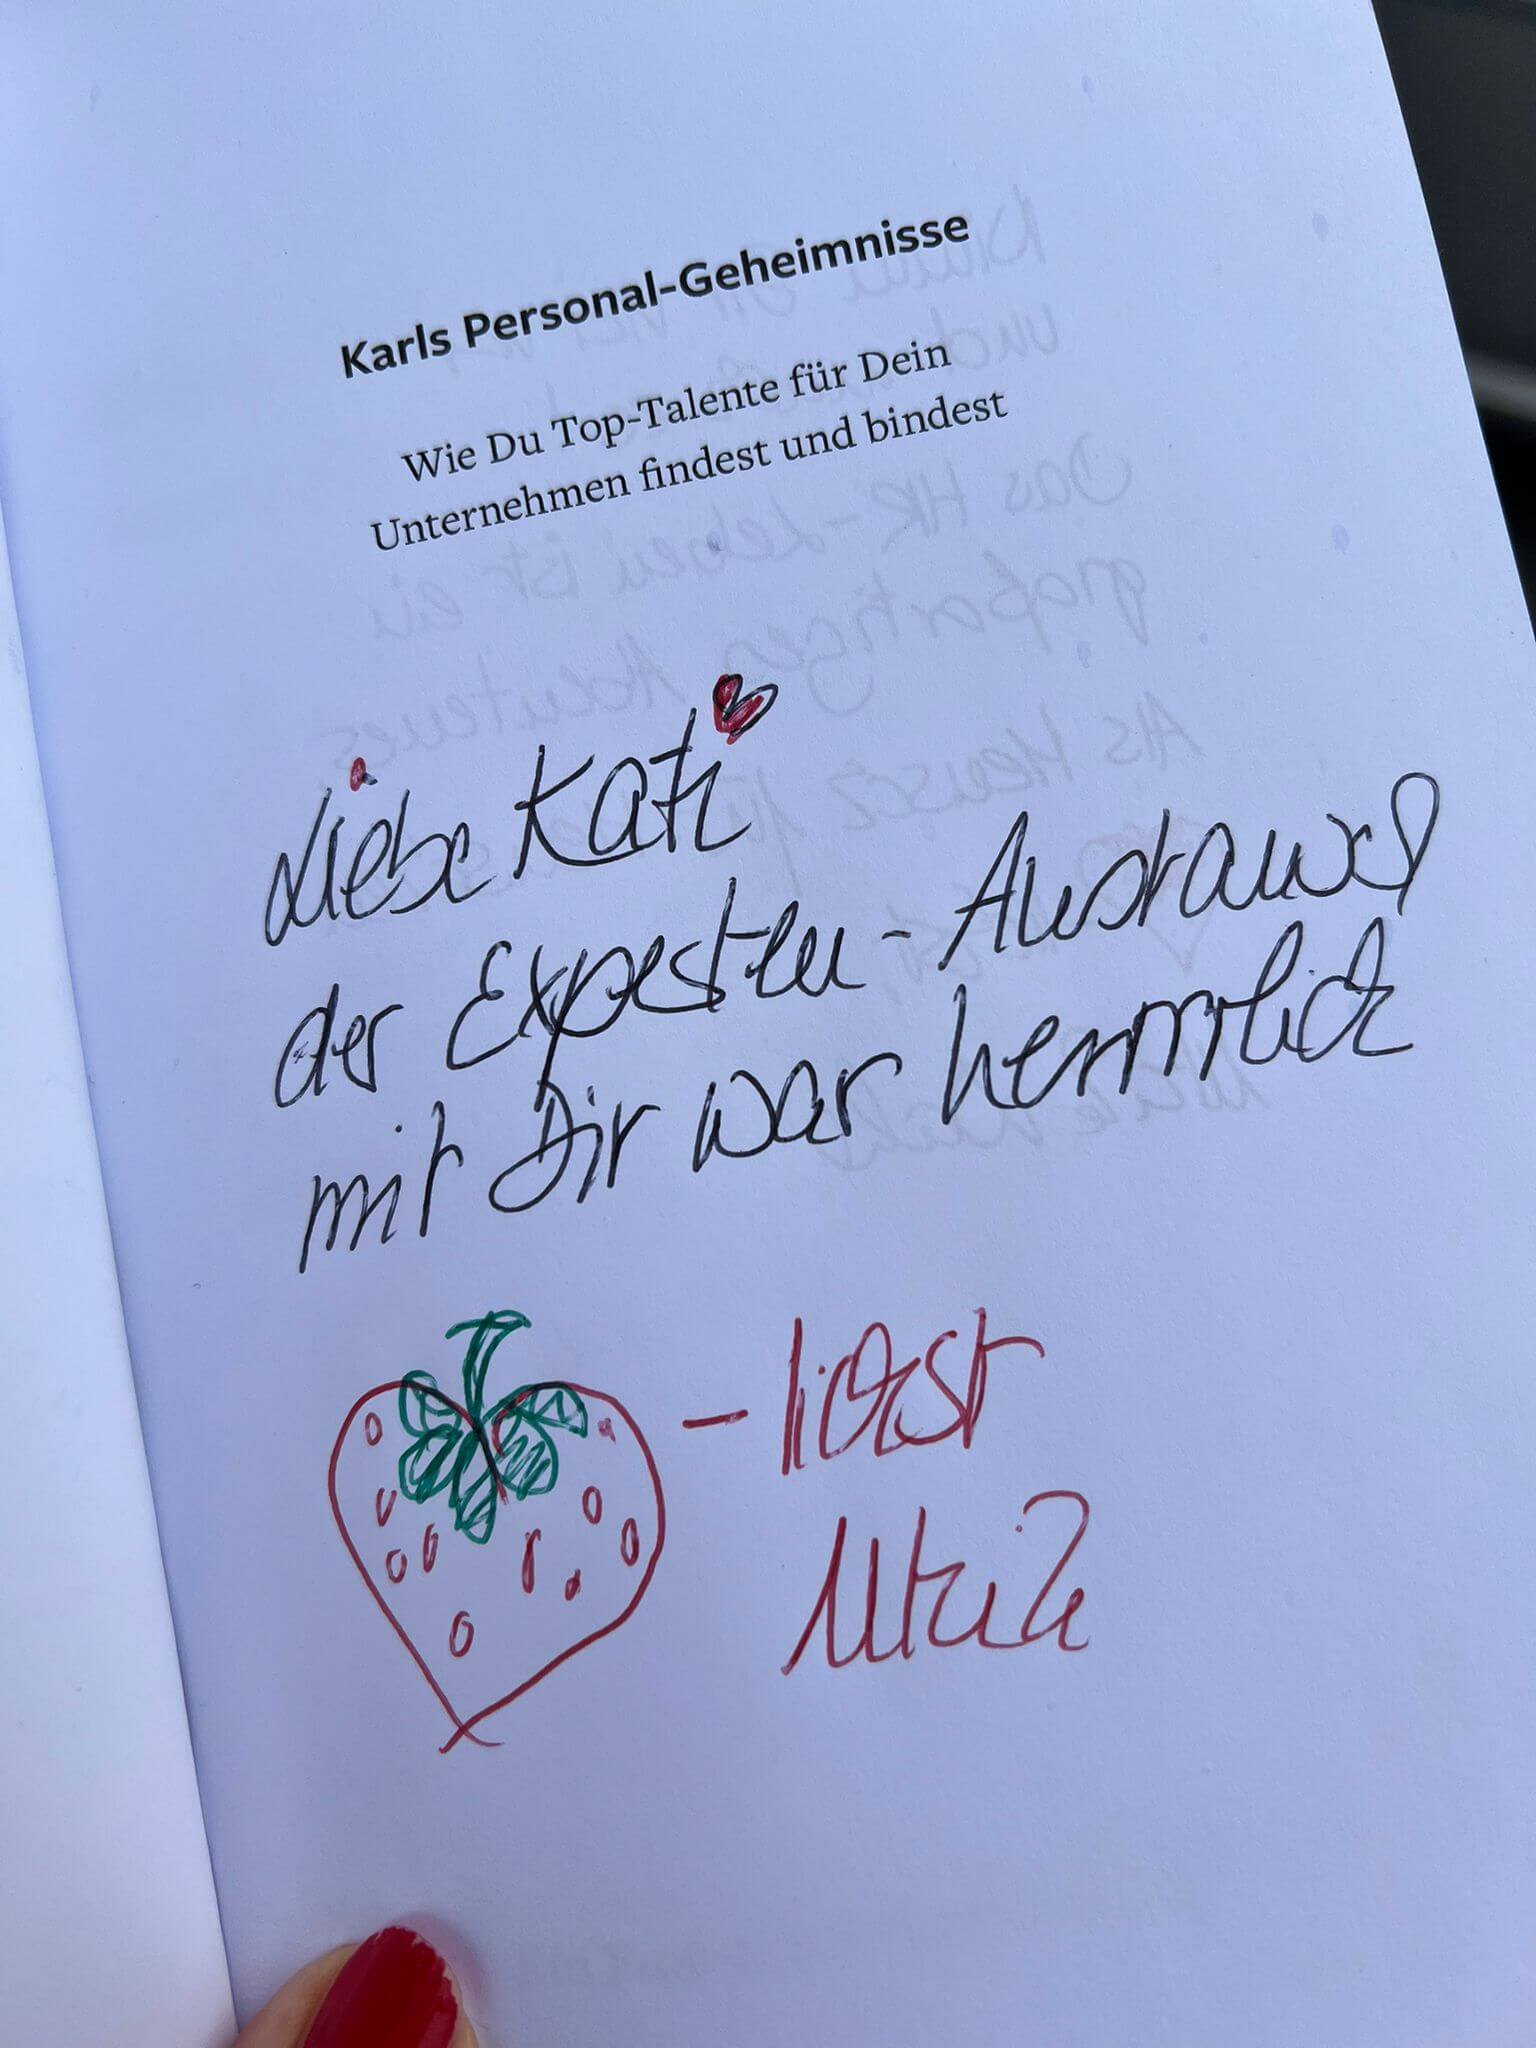 Karls Personal-Geheimnisse
Wie Du Top-Talente für Dein
Unternehmen findest und bindest
Liebe Kati
der Experten-Austausch
mit Dir war herrrrlich
- lichst